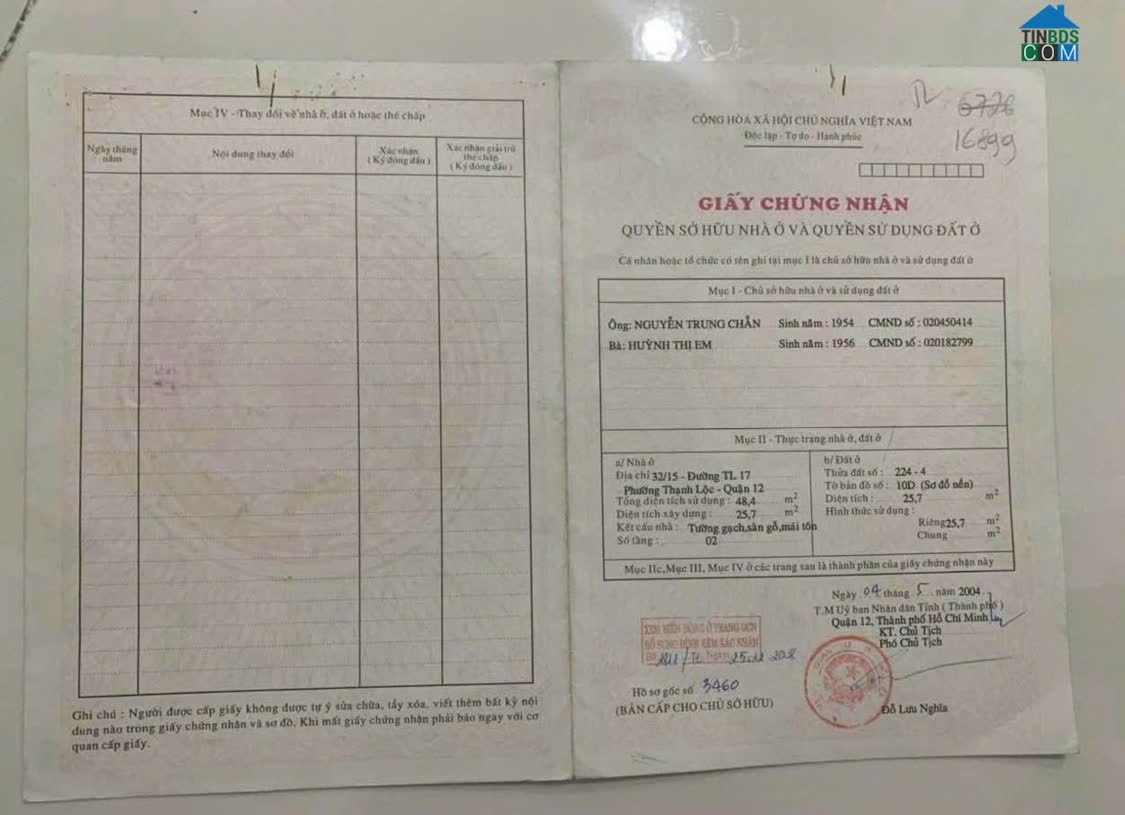 TINBDS
COM
Mục IV - Thay đổi về nhà ở, đất ở hoặc thế chấp
Ngày tháng năm
Nội dung thay đổi
Xác nhận
( Ký đóng dấu )
Xác nhận giải trừ
thế chấp
( Ký đóng dấu )
Ghi chú : Người được cấp giấy không được tự ý sửa chữa, tẩy xóa, viết thêm bất kỳ nội
dung nào trong giấy chứng nhận và sơ đồ. Khi mất giấy chứng nhận phải báo ngay với cơ
quan cấp giấy.
6726
16899
CỘNG HÒA XÃ HỘI CHỦ NGHĨA VIỆT NAM
Độc lập - Tự do - Hạnh phúc
GIẤY CHỨNG NHẬN
QUYỀN SỞ HỮU NHÀ Ở VÀ QUYỀN SỬ DỤNG ĐẤT Ở
Cá nhân hoặc tổ chức có tên ghi tại mục I là chủ sở hữu nhà ở và sử dụng đất ở
Mục I - Chủ sở hữu nhà ở và sử dụng đất ở
Ông: NGUYỄN TRUNG CHẴN Sinh năm : 1954 CMND số : 020450414
Bà: HUỲNH THỊ EM Sinh năm : 1956 CMND số : 020182799
Mục II - Thực trạng nhà ở, đất ở
a/ Nhà ở
Địa chỉ 32/15 - Đường TL 17
Phường Thạnh Lộc - Quận 12
Tổng diện tích sử dụng : 48,4 m2
Diện tích xây dựng : 25,7 m2
Kết cấu nhà : Tường gạch,sàn gỗ,mái tôn
Số tầng : 02
b/ Đất ở
Thửa đất số : 224 - 4
Tờ bản đồ số : 10D (Sơ đồ nền)
Diện tích : 25,7 m2
Hình thức sử dụng :
Riêng 25,7 m2
Chung m2
Mục IIc,Mục III, Mục IV ở các trang sau là thành phần của giấy chứng nhận này
Ngày 04 tháng 5 năm 2004
T.M Uỷ ban Nhân dân Tỉnh ( Thành phố )
Quận 12, Thành phố Hồ Chí Minh
KT. Chủ Tịch
Phó Chủ Tịch
XEM BIẾN ĐỘNG Ở TRANG GCN
BỔ SUNG ĐÍNH KÈM XÁC NHẬN
Hồ sơ gốc số 3460
(BẢN CẤP CHO CHỦ SỞ HỮU)
Đỗ Lưu Nghĩa